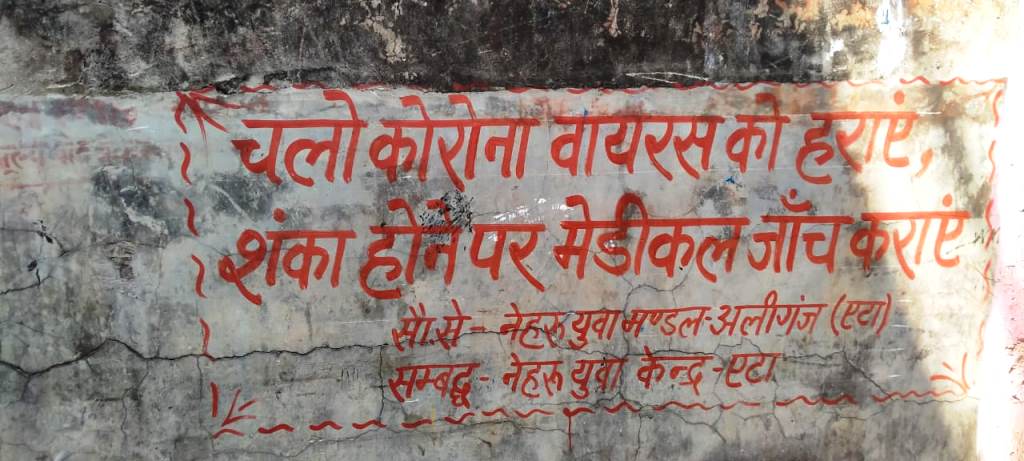 चलो कोरोना वायरस को हराएं,
शंका होने पर मेडीकल जाँच कराएं
सौ.से - नेहरू युवा मण्डल-अलीगंज (एटा)
सम्बद्ध - नेहरू युवा केन्द्र-एटा